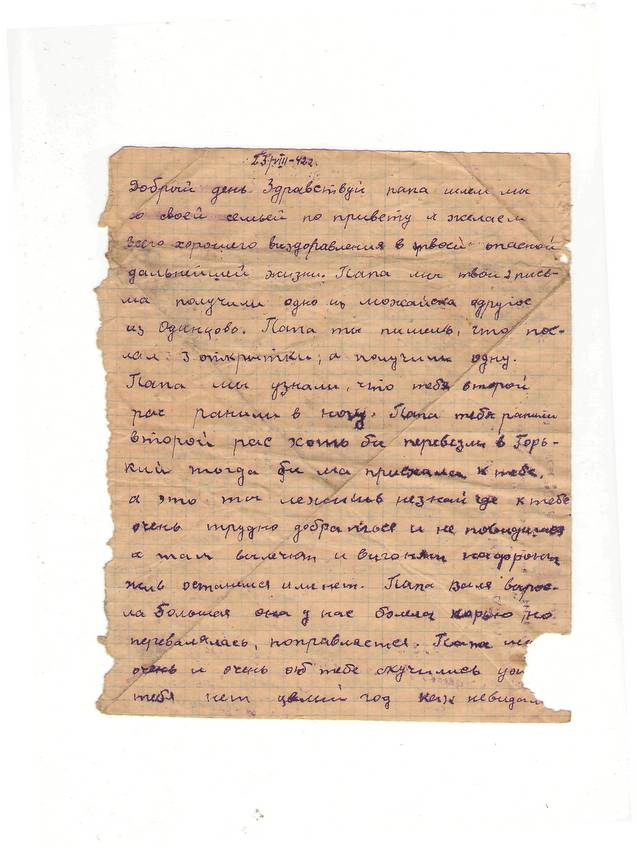 23/VIII-42г.
Добрый день Здравствуй папа шлем мы
со своей семьей по привету и желаем
всего хорошего виздоравления в твоей опасной
дальнейшей жизни. Папа мы твои 2 пись-
ма получили одно из можайска другое
из Одинцово. Папа ты пишешь, что пос-
лал 3 открытки, а получили одну.
Папа мы узнали, что тебя второй
рас ранили в ногу. Папа тебя ранили
второй рас хоть би перевезли в Горь-
кий тогда би ма приехали к тебе,
а это ты лежишь незнай где к тебе
очень трудно добраться и не повидимся
а там вылечат и вигонят нафронт
жив останешся или нет. Папа Валя вырос-
ла большая она у нас болела корью но
перевалялась, поправляется. Папа
очень и очень об тебе скучились
тебя нет целий год как невидали